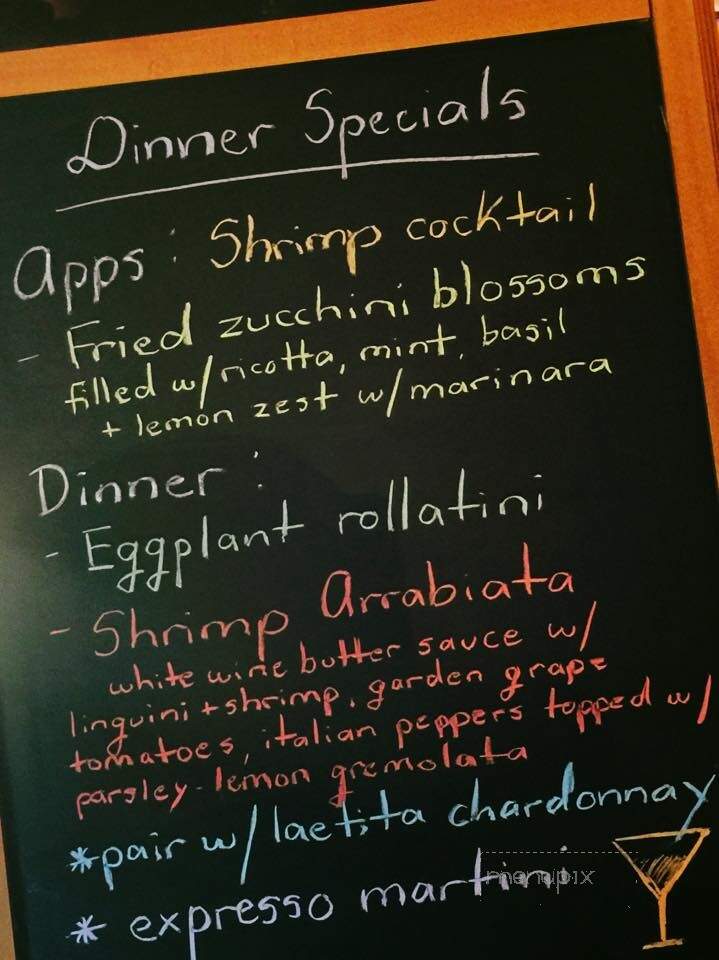 Dinner Specials
Apps: Shrimp cocktail
- Fried zucchini blossoms
filled w/ricotta, mint, basil
+ lemon zest w/marinara
Dinner:
- Eggplant rollatini
- Shrimp Arrabiata
white wine butter sauce w/
linguini + shrimp, garden grape
tomatoes, italian peppers topped w/
parsley-lemon gremolata
*pair w/laetita chardonnay
* expresso martini
menupix